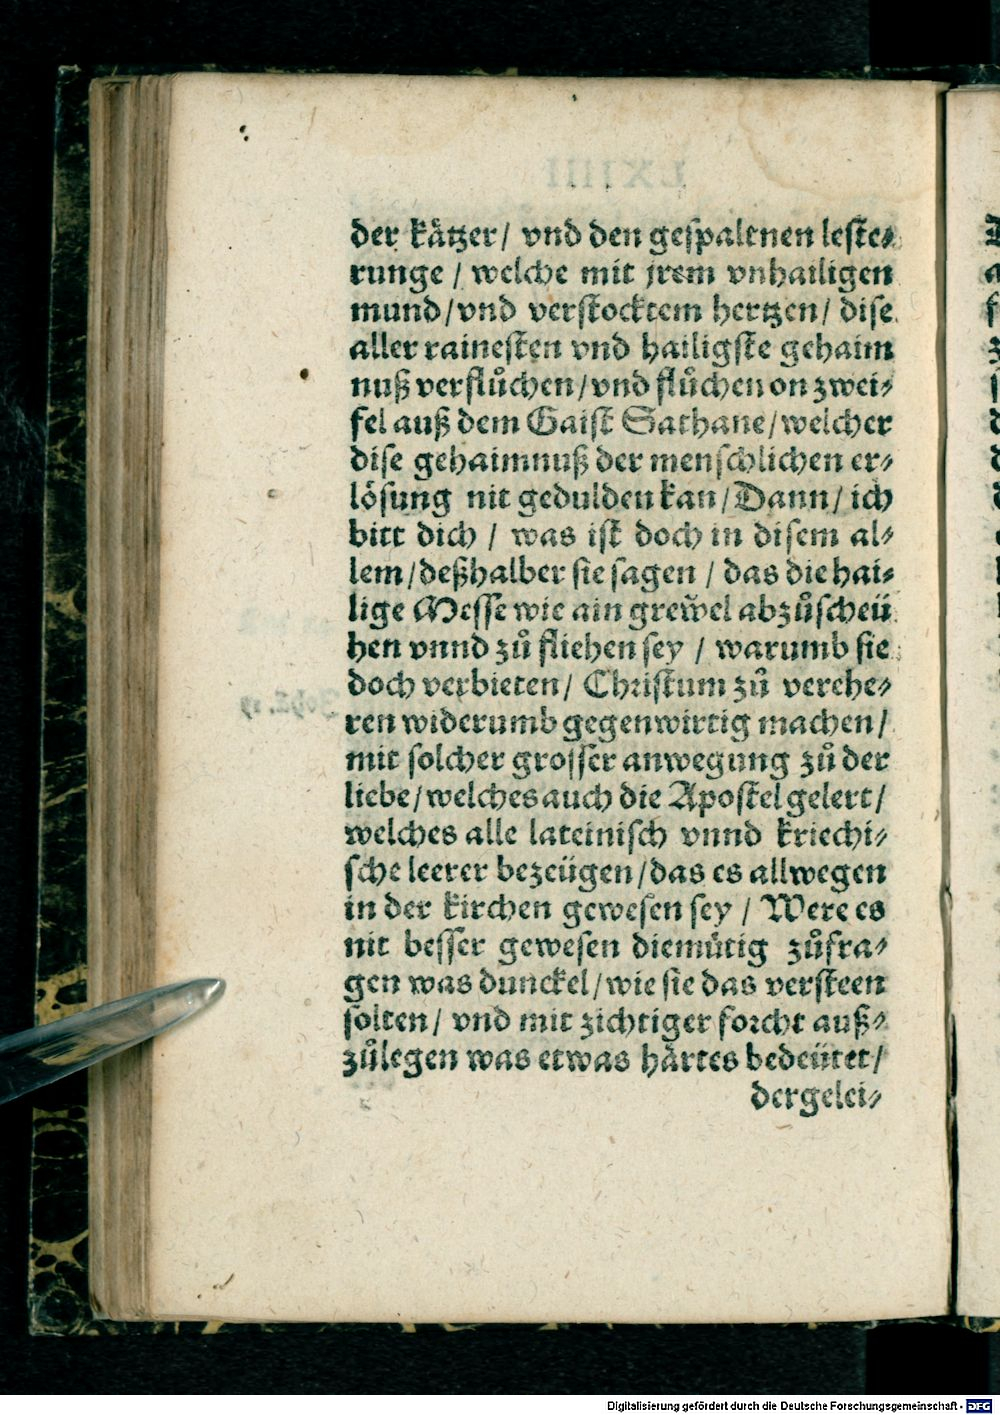 der kåtzer/ vnd den gespaltnen leste⸗
runge / welche mit jrem vnhailigen
mund/vnd verstocktem hertzen/ dise
aller rainesten vnd hailigste gehaim
nuß verflůchen/vnd flůchen on zwei⸗
fel auß dem Gaist Sathane/welcher
dise gehaimnuß der menschlichen er⸗
lösung nit gedulden kan/Dann/ ich
bitt dich / was ist doch in disem al⸗
lem/deßhalber sie sagen / das die hai⸗
lige Messe wie ain grewel abzůscheü
hen vnnd zů fliehen sey / warumb sie
doch verbieten/ Christum zů verehe⸗
ren widerumb gegenwirtig machen/
mit solcher grosser anwegung zů der
liebe/welches auch die Apostel gelert/
welches alle lateinisch vnnd kriechi⸗
sche leerer bezeügen/das es allwegen
in der kirchen gewesen sey / Were es
nit besser gewesen diemůtig zůfra⸗
gen was dunckel/wie sie das versteen
solten/ vnd mit zichtiger forcht auß⸗
zůlegen was etwas hårtes bedeütet/
dergelei⸗
Digitalisierung gefördert durch die Deutsche Forschungsgemeinschaft - DFG